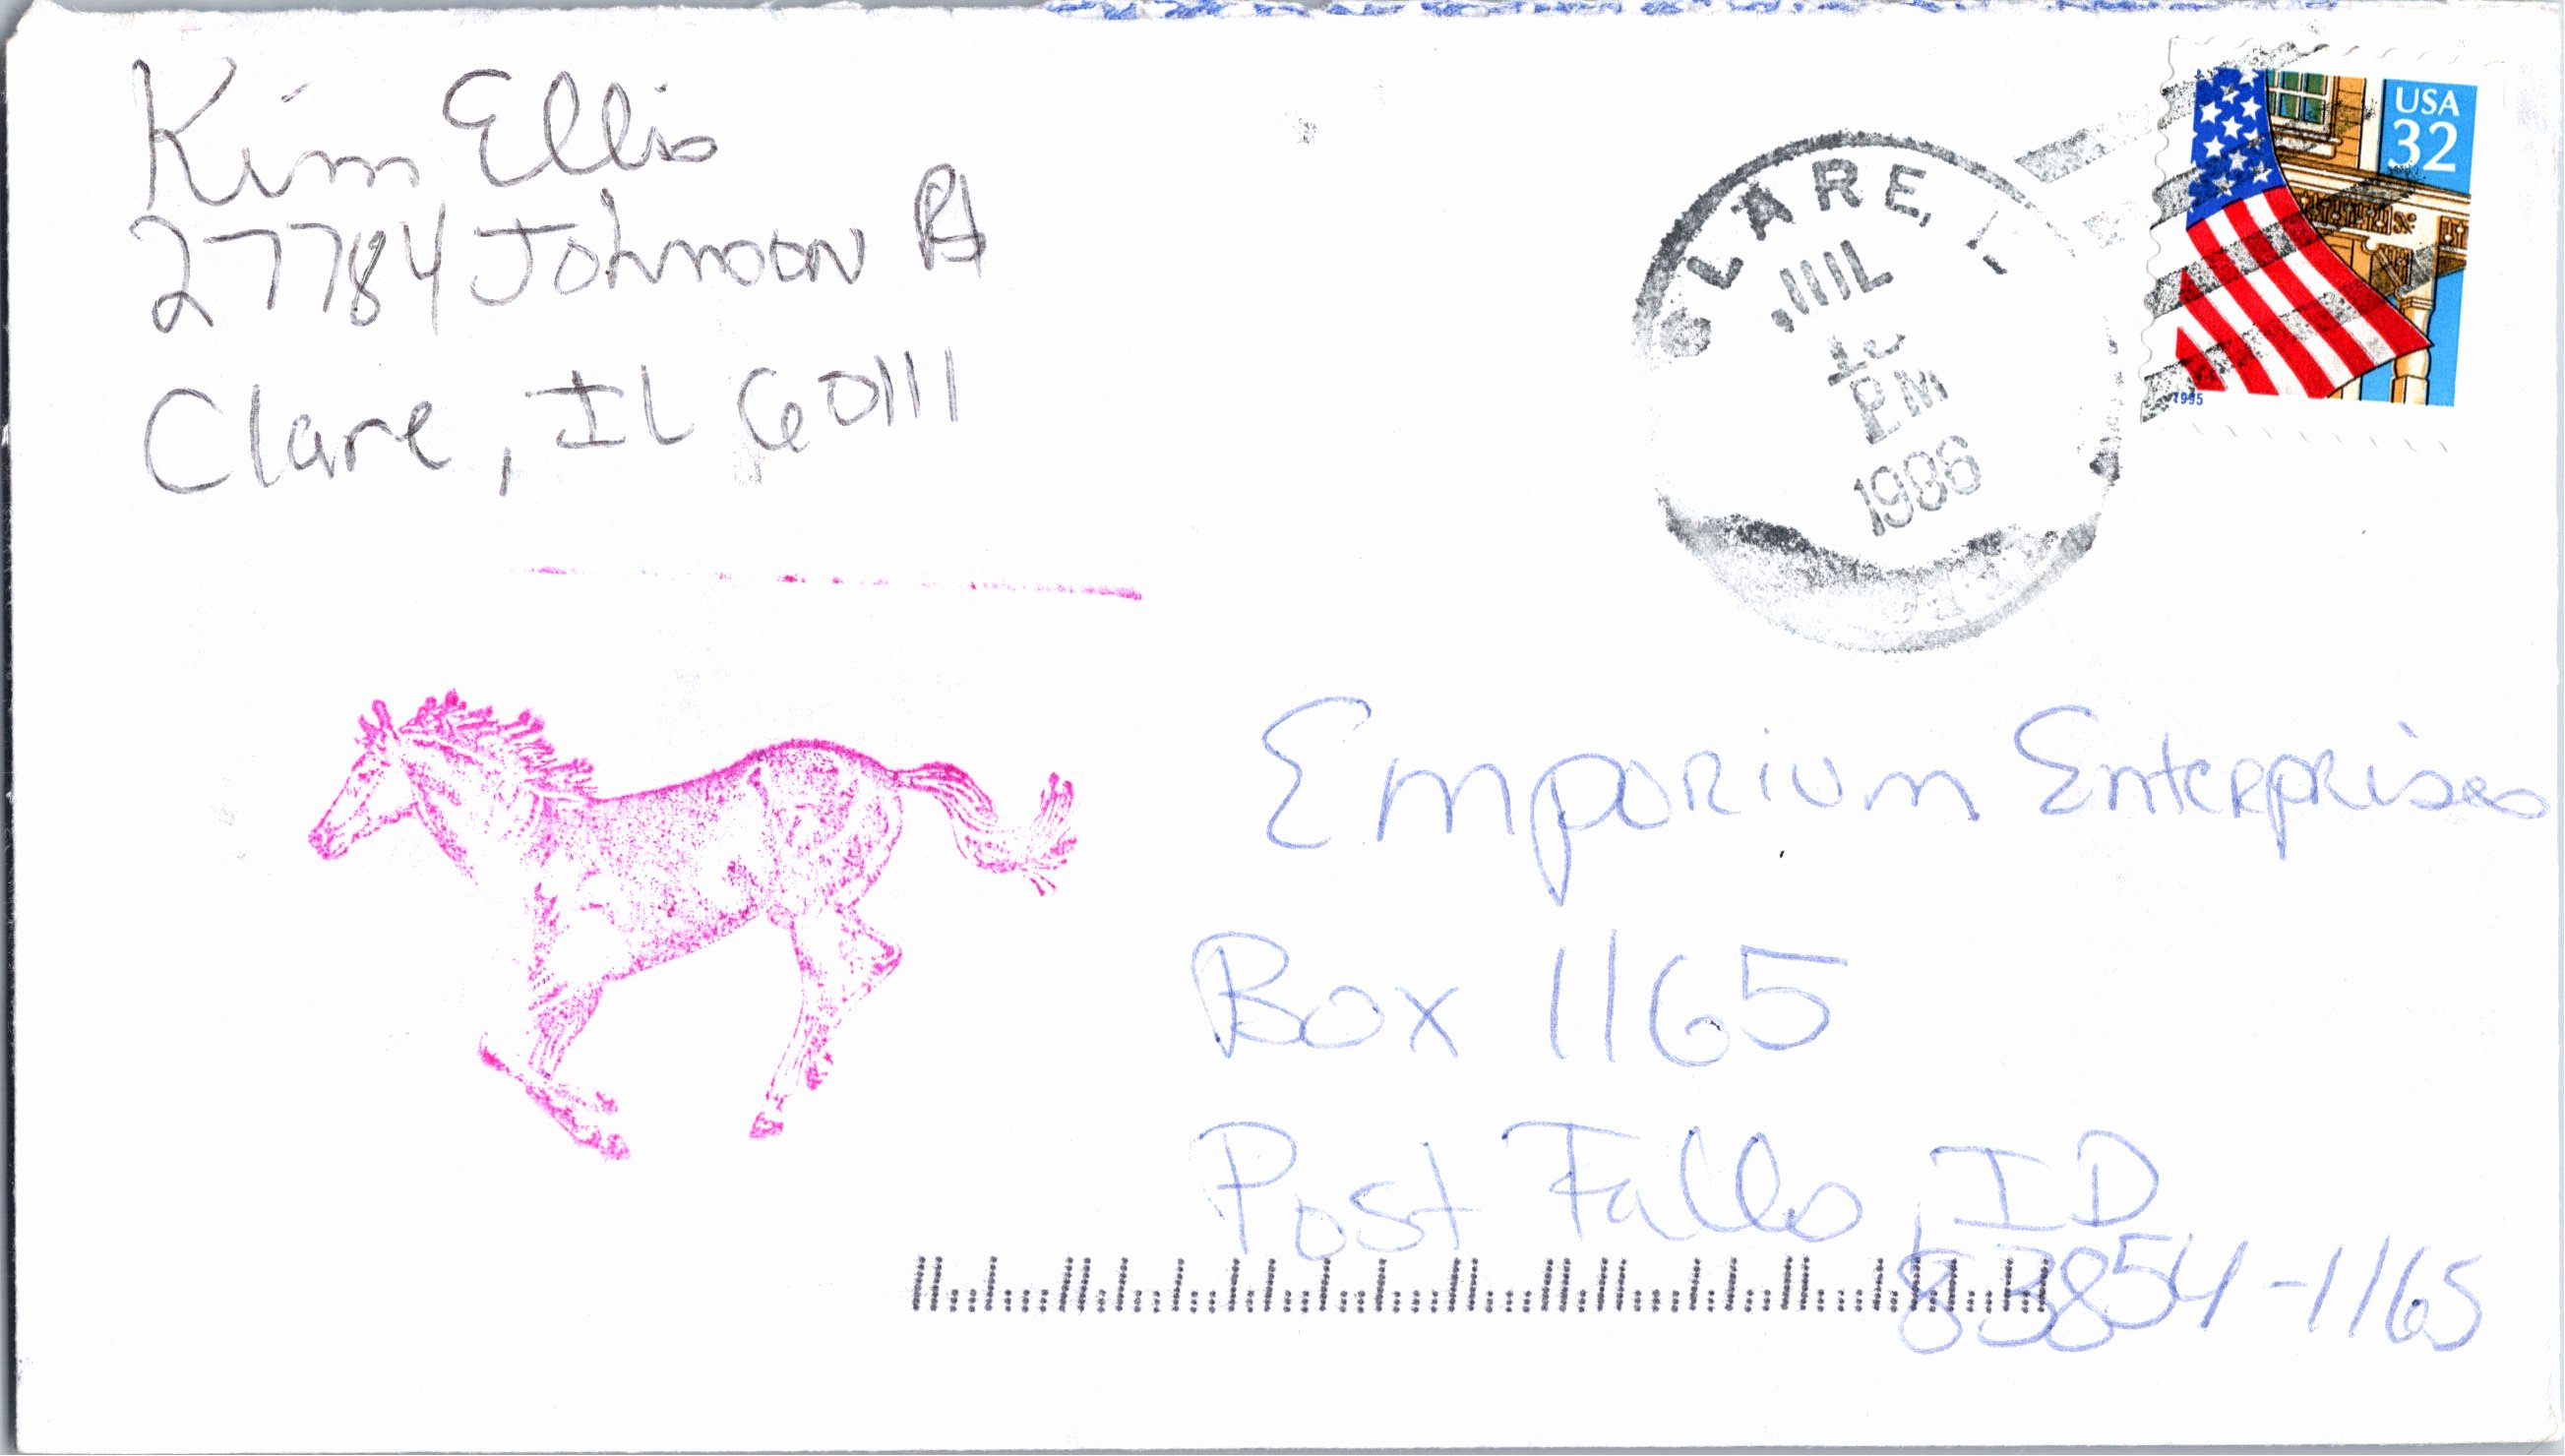 Kim Ellis
27784 Johnson Rd
Clare, IL 60111
USA
32
1995
CLARE, I
JUL
PM
1996
Emporium Enterprises
Box 1165
Post Falls, ID
83854-1165